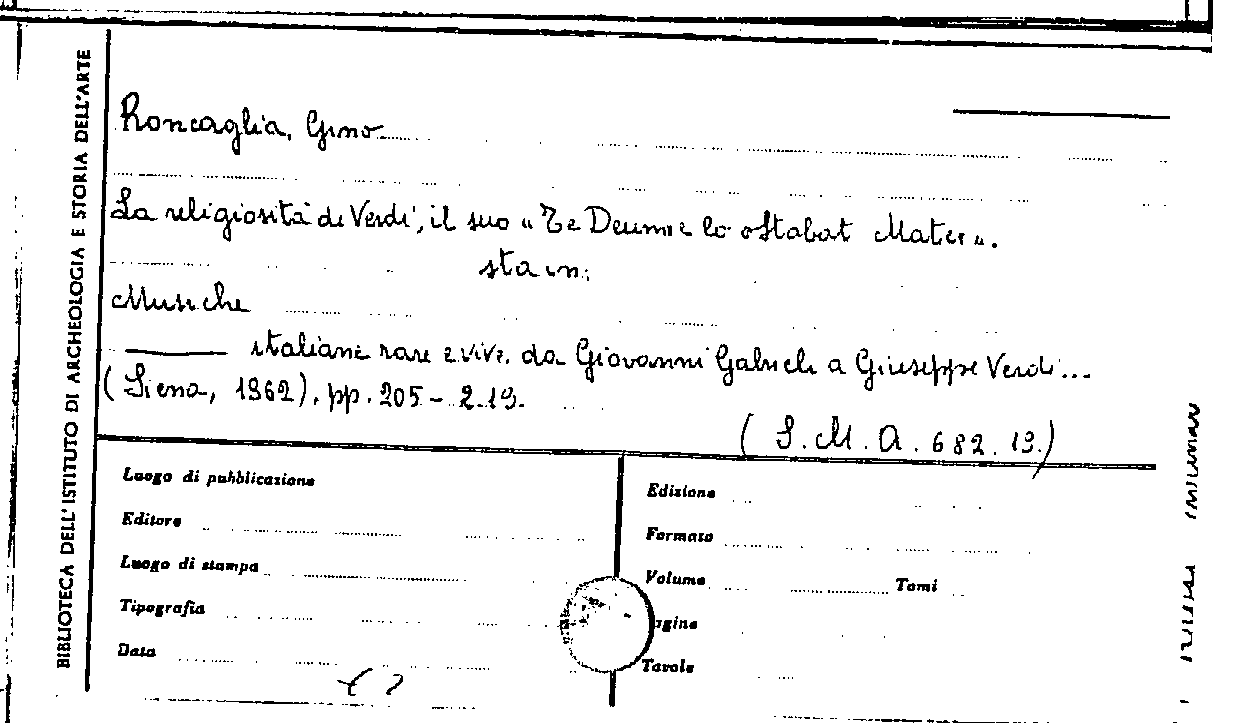 BIBLIOTECA DELL'ISTITUTO DI ARCHEOLOGIA E STORIA DELL'ARTE
Roncaglia, Gino
La religiosità di Verdi, il suo "Te Deum e lo Stabat Mater".
sta in:
Musiche
italiane rare e vive da Giovanni Gabrieli a Giuseppe Verdi...
(Siena, 1962), pp. 205-219.
(S.M.A. 682.19.)
Luogo di pubblicazione
Editore
Luogo di stampa
Tipografia
Data
Edizione
Formato
Volume Tomi
agine
Tavole